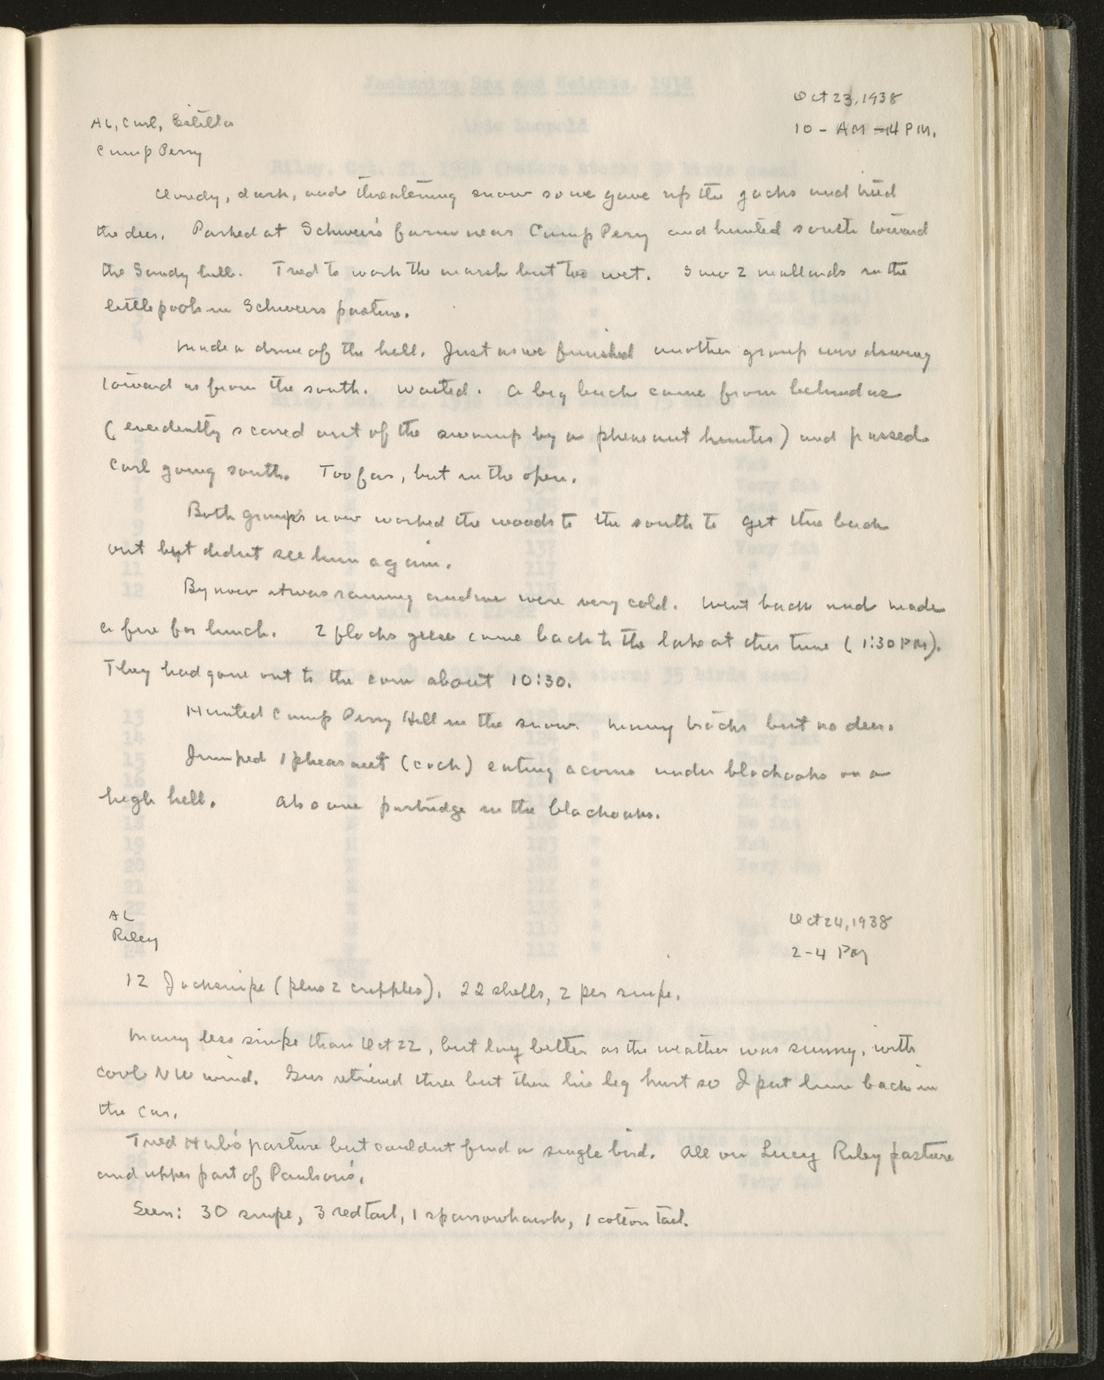 Oct 23, 1938
AL, Carl, Estella
10 - AM - 4 PM.
Camp Perry
Cloudy, dark, and threatening snow so we gave up the jacks and tried
the deer. Parked at Schweirs farm near Camp Perry and hunted south toward
the Sandy hill. Tried to work the marsh but too wet. Saw 2 mallards in the
little pools in Schweirs pasture.
Made a drive of the hill. Just as we finished another group was driving
toward us from the south. Waited. A big buck came from behind us
(evidently scared out of the swamp by a pheasant hunter) and passed
Carl going south. Too far, but in the open.
Both groups now worked the woods to the south to get the buck
out but didnt see him again.
By now it was raining and we were very cold. Went back and made
a fire for lunch. 2 flocks geese came back to the lake at this time (1:30 PM).
They had gone out to the corn about 10:30.
Hunted Camp Perry Hill in the snow. Many tracks but no deer.
Jumped 1 pheasant (cock) eating acorns under blackoaks on a
high hill. Also one partridge in the blackoaks.
AL
Oct 24, 1938
Riley
2-4 PM
12 Jacksnipe (plus 2 cripples). 22 shells, 2 per snipe.
Many less snipe than Oct 22, but lay better as the weather was sunny, with
cool NW wind. Gus retrieved three but then his leg hurt so I put him back in
the car.
Tried Hub's pasture but couldnt find a single bird. All on Lucy Riley pasture
and upper part of Paulson's.
Seen: 30 snipe, 3 redtail, 1 sparrowhawk, 1 cottontail.